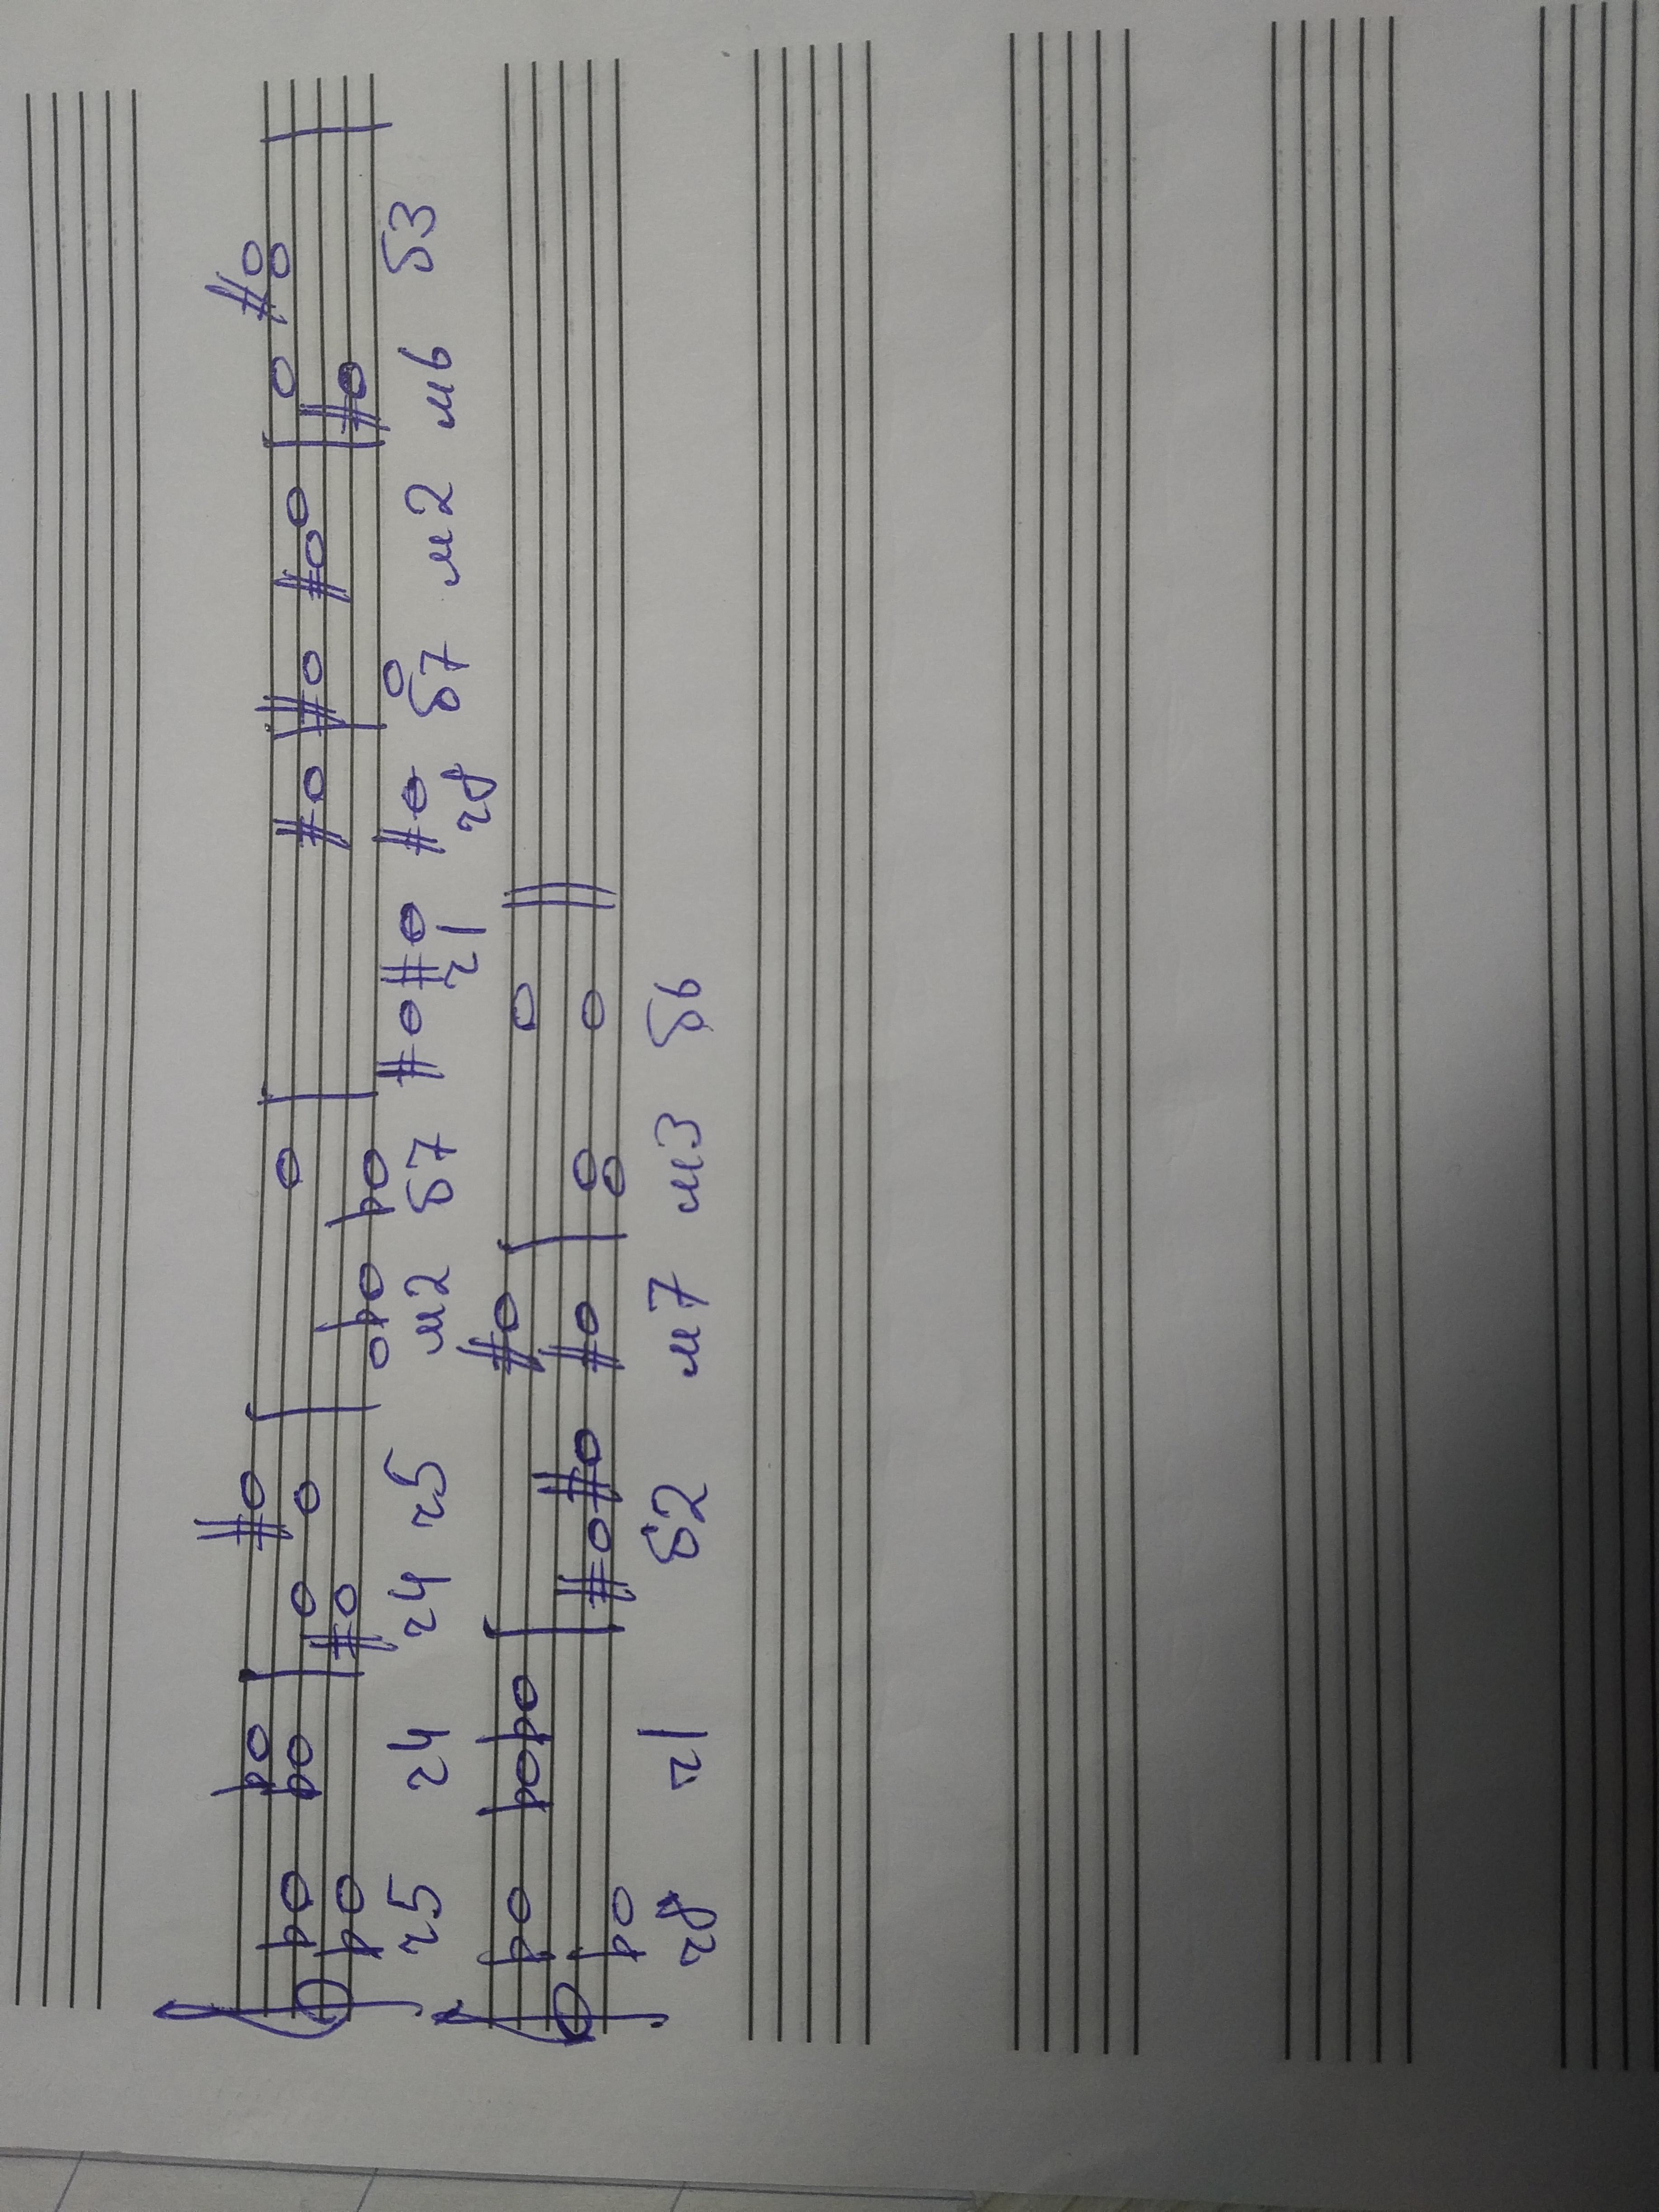 ч5 ч4 ч4 ч5 м2 б7 ч1 ч8 б7 м2 м6 б3
ч8 ч1 б2 м7 м3 б6